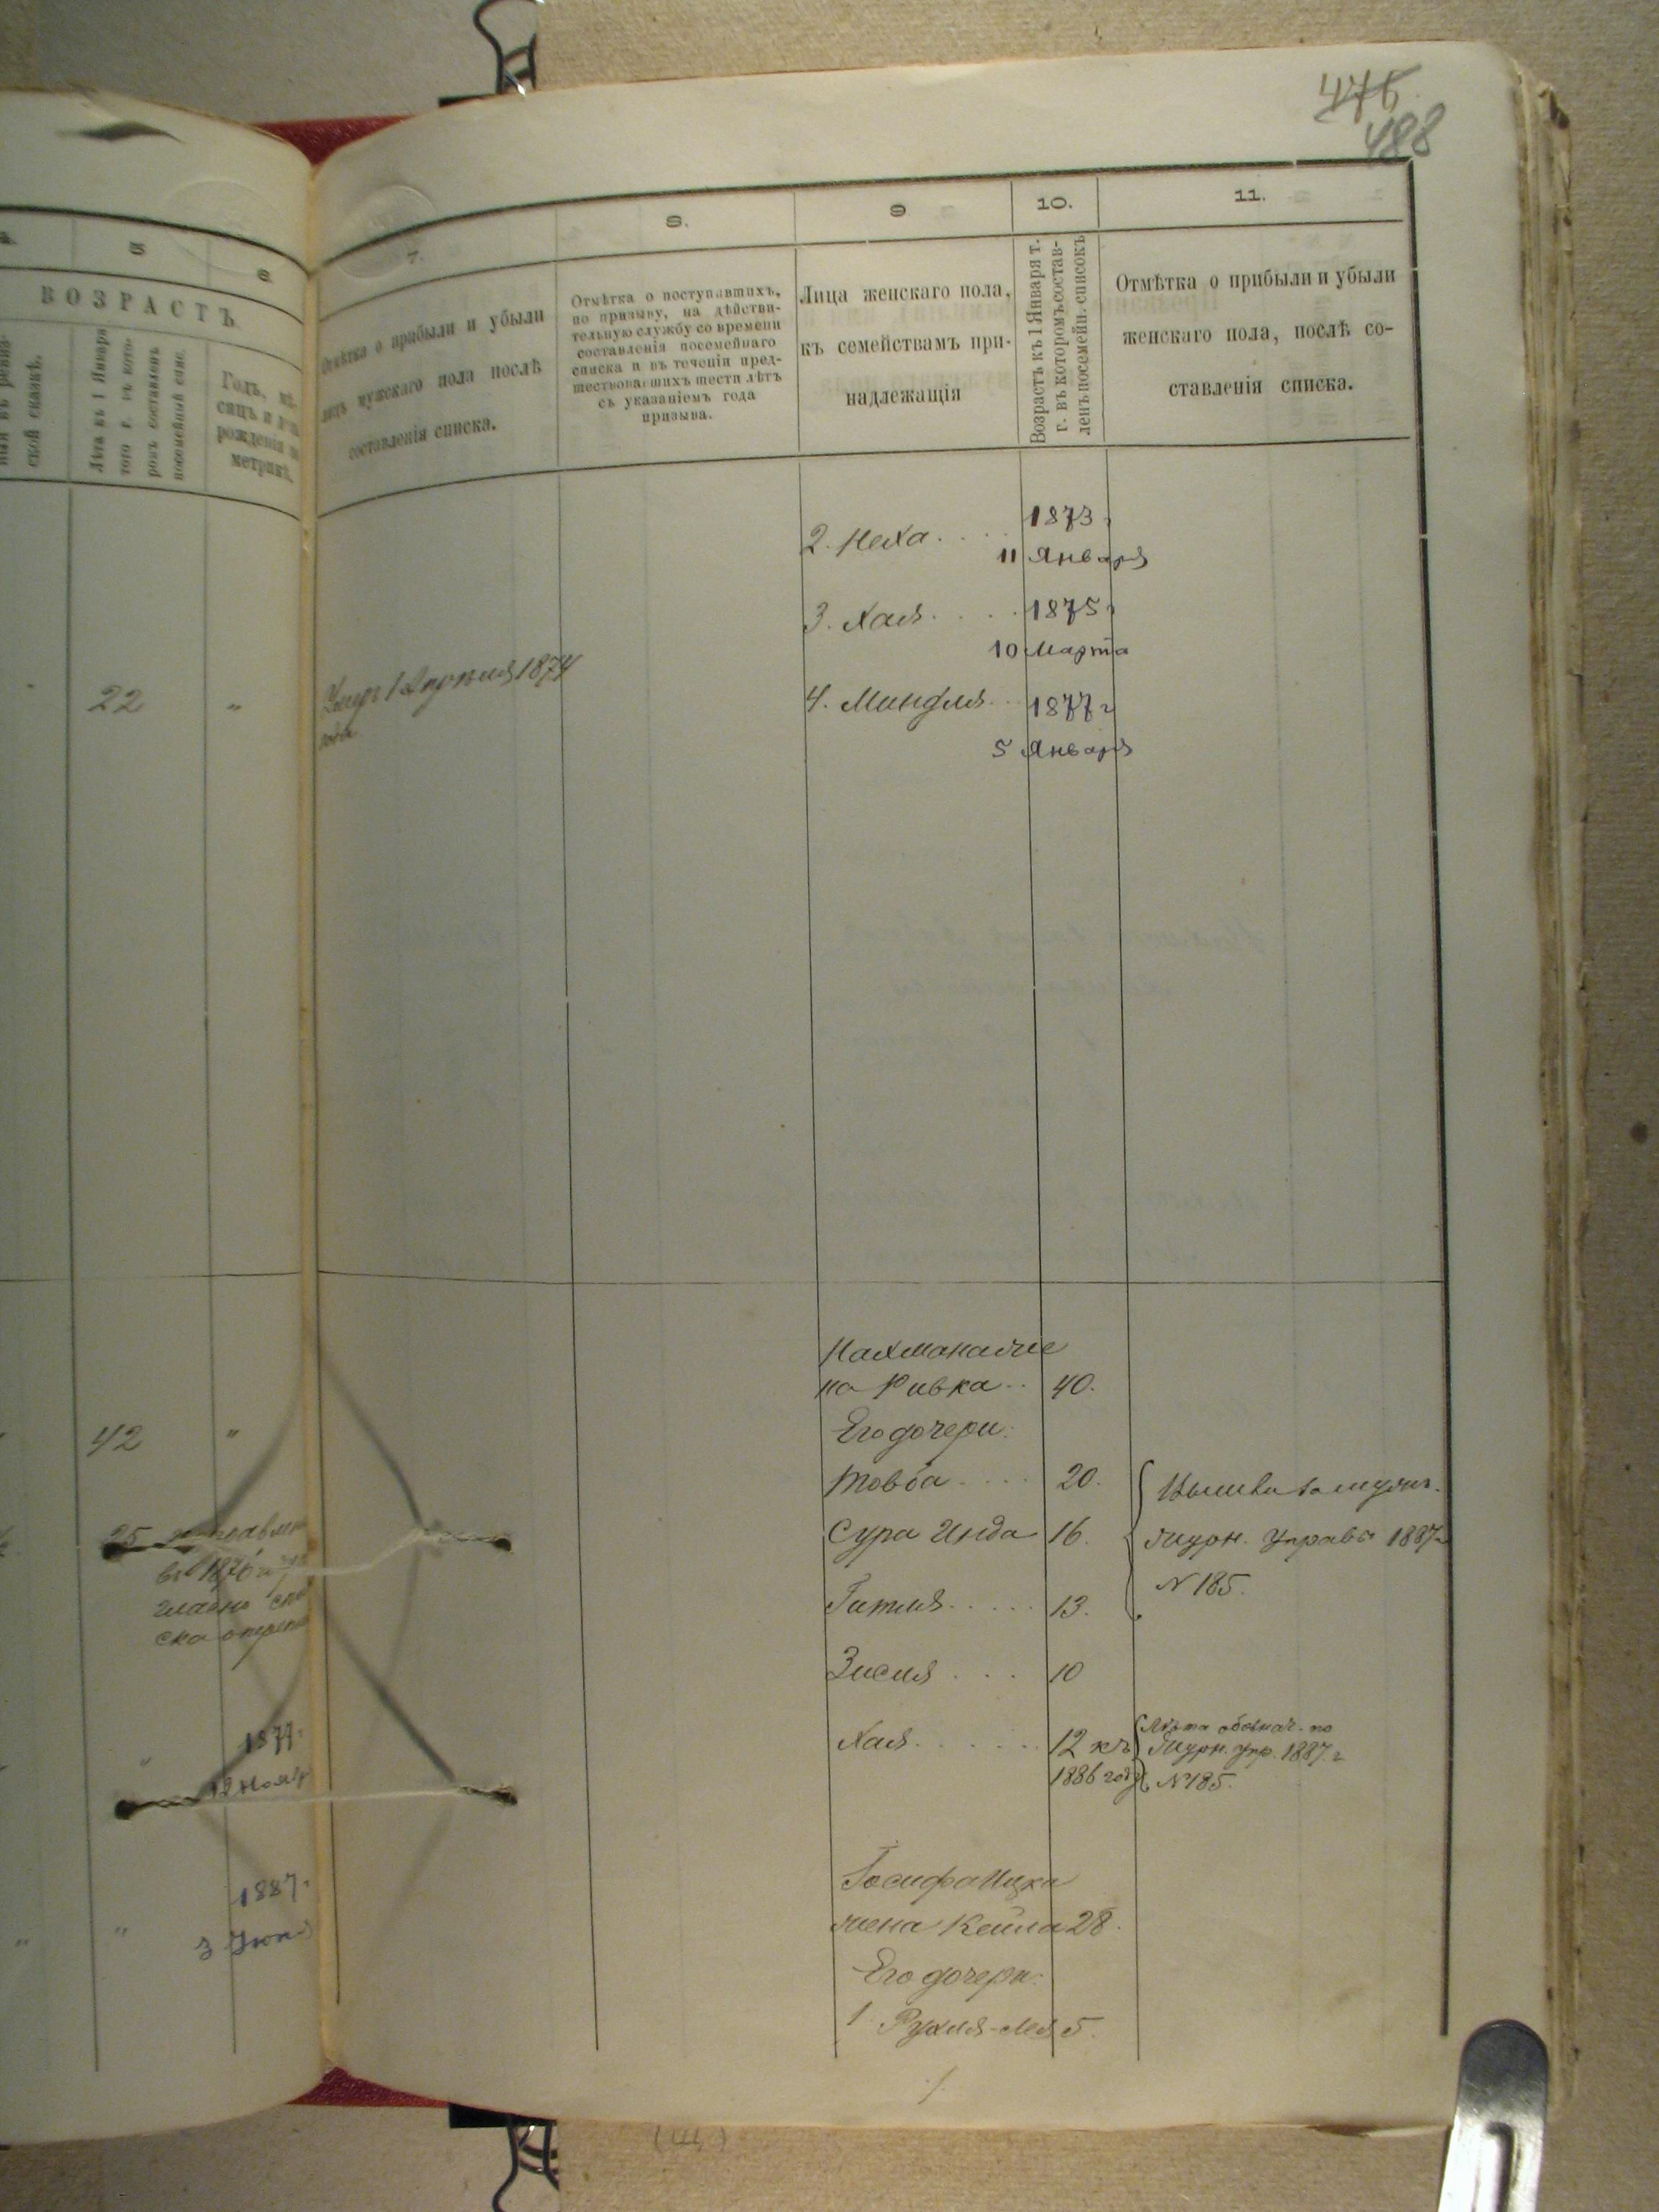 476
488
5
6
ВОЗРАСТЪ
ской сказкѣ.
Лѣта къ 1 Января
того г. въ кото-
ромъ составленъ
посемейный спис.
Годъ, мѣ-
сяцъ и день
рожденія по
метрикѣ.
22 „
42 „
25
въ 1876 г.
1877 г.
12 Нояр
1887 г.
„ „ 3 Іюн.
7.
Отмѣтка о прибыли и убыли
лицъ мужскаго пола послѣ
составленія списка.
Умеръ 1 Апрѣля 1874
года
8.
Отмѣтка о поступившихъ,
по призыву, на дѣйстви-
тельную службу со времени
составленія посемейнаго
списка и въ теченіи пред-
шествовавшихъ шести лѣтъ
съ указаніемъ года
призыва.
9
Лица женскаго пола,
къ семействамъ при-
надлежащія
10.
Возрастъ къ 1 Января т.
г. въ которомъ состав-
ленъ посемейн. списокъ
11.
Отмѣтка о прибыли и убыли
женскаго пола, послѣ со-
ставленія списка.
2. Неха . . . . 1873 г
11 Января
3. Хая . . . . 1875 г
10 Марта
4. Миндля . . 1877 г
5 Января
Нахмана же
на Ривка . . 40.
Его дочери:
Товба . . . . 20.
Сура Инда 16.
Гитля . . . . . 13.
журн. Управы 1887 г
N 185.
Зисля . . . . 10
Хая . . . . . . 12 къ
1886 году
Лѣта обознач. по
журн. упр. 1887 г
N 185.
Іосифа Ицки
жена Кейла 28.
Его дочери:
1. Рухля-Лея 5.